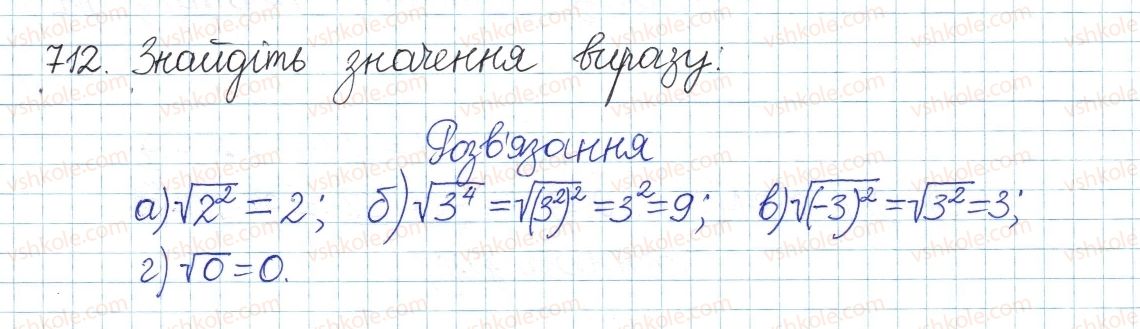 712. Знайдіть значення виразу:
Розв'язання
а) √2² = 2; б) √3⁴ = √(3²)² = 3² = 9; в) √(-3)² = √3² = 3;
г) √0 = 0.